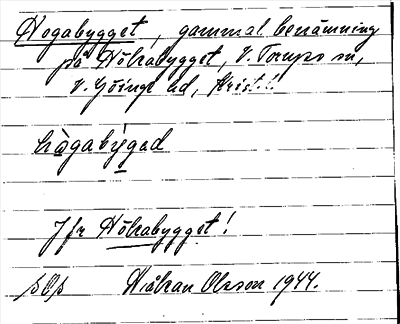 Hogabygget, gammal benämning
på Hökabygget, V. Torups sn,
V. Göinge hd, Krist. l.
hògabýgad
Jfr Hökabygget!
Håkan Olsson 1944.